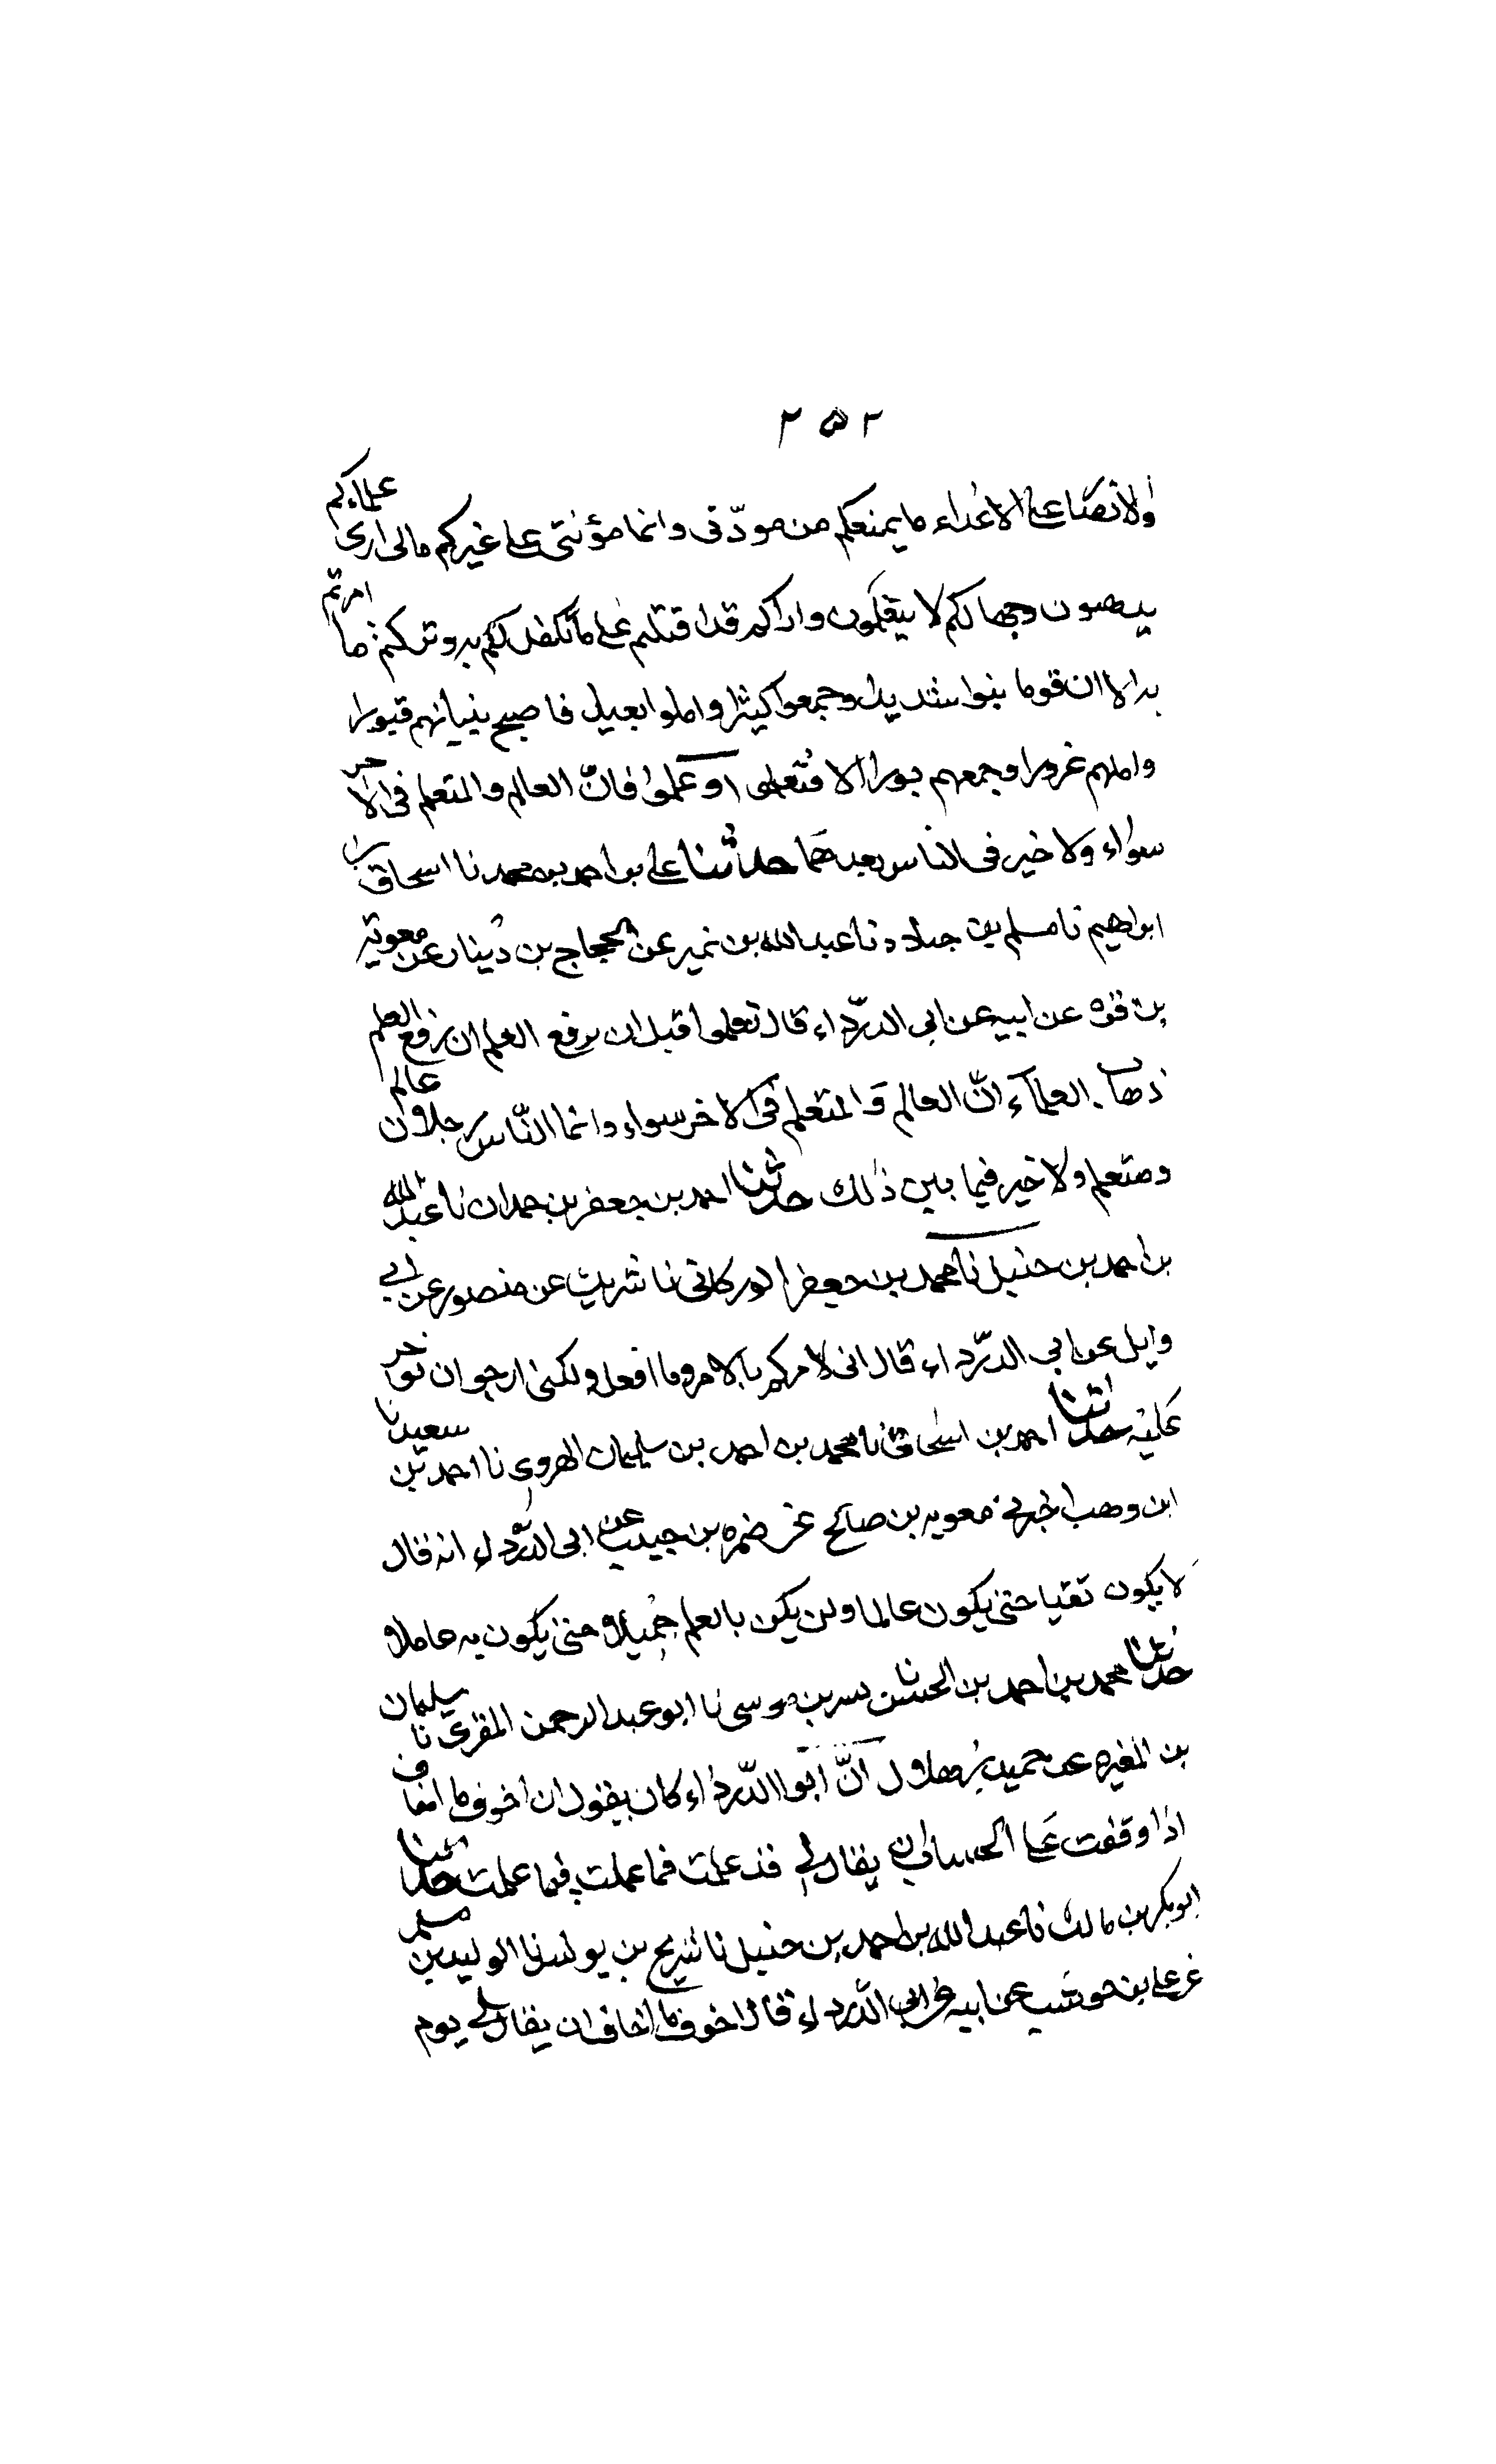 ۲۵۲
والانصار على الاعداء ما يمنعكم من مودّتى وانما مؤنتى على غيركم مالى ارى علماءكم
يذهبون وجهالكم لا يتعلمون واراكم قد اقبلتم على ما تكفل لكم به وتركتم ما امرتم
به الا ان قوما بنوا شديدا وجمعوا كثيرا واملوا بعيدا فاصبح بنيانهم قبورا
واملهم غرورا وجمعهم بورا الا فتعلموا وعلموا فانّ العالم والمتعلم فى الاجر
سواء ولا خير فى الناس بعدهما حدثنا على بن احمد بن محمد نا اسحاق بن
ابراهيم نا مسلم بن جنادة نا عبد الله بن نمير عن الحجاج بن دينار عن معوية
بن قره عن ابيه عن ابى الدرّداء قال تعلموا قبل ان يرفع العلم ان رفع العلم
ذهاب العلمآء انّ العالم والمتعلم فى الاجر سواء وانما النّاس رجلان عالم
ومتعلم ولا خير فيما بين ذلك حدثنا احمد بن جعفر بن حمدان نا عبد الله
بن احمد بن حنبل نا محمد بن جعفر الوركانى نا شريك عن منصور عن ابى
وايل عن ابى الدرّداء قال انى لامركم بالامر وما افعله ولكنى ارجو ان توجر
عليه حدثنا احمد بن اسحاق نا محمد بن احمد بن سليمان الهروى نا احمد بن سعيد نا
ابن وهب اخبرنى معويه بن صالح عن ضمره بن حبيب عن ابى الدّرداء انه قال
لا يكون تقيا حتى يكون عالما ولن يكن بالعلم جميلا حتى يكون به عاملا
حدثنا محمد بن احمد بن الحسن نا بشر بن موسى نا ابو عبد الرحمن المقرى نا سليمان
بن المغيره عن حميد بن هلال انّ ابوا الدّرداء كان يقول ان اخوف ما اخاف
اذا وقفت على الحساب ان يقال لى قد علمت فما عملت فيما علمت حدثنا
ابو بكر بن مالك نا عبد الله بن احمد بن حنبل نا شريح بن يونس نا الوليد بن مسلم
عن على بن حوشب عن ابيه عن ابى الدّرداء قال اخوف ما اخاف ان يقال لى يوم